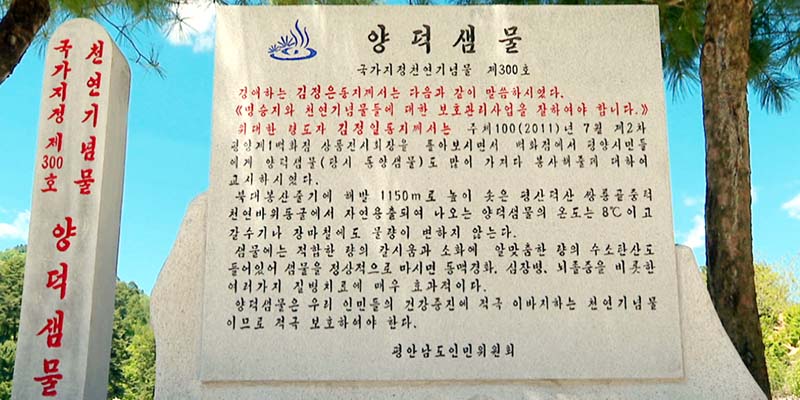 천연기념물
국가지정 제300호
양덕샘물
양덕샘물
국가지정천연기념물 제300호
경애하는 김정은동지께서는 다음과 같이 말씀하시였다.
《명승지와 천연기념물들에 대한 보호관리사업을 잘하여야 합니다.》
위대한 령도자 김정일동지께서는 주체100(2011)년 7월 제2차
평양제1백화점 상품전시회장을 돌아보시면서 백화점에서 평양시민들
에게 양덕샘물(당시 동양샘물)도 많이 가져다 봉사해줄데 대하여
교시하시였다.
북대봉산줄기에 해발 1150m로 높이 솟은 평산덕산 쌍룡골중턱
천연바위동굴에서 자연용출되여 나오는 양덕샘물의 온도는 8℃이고
갈수기나 장마철에도 물량이 변하지 않는다.
샘물에는 적합한 량의 칼시움과 소화에 알맞춤한 량의 수소탄산도
들어있어 샘물을 정상적으로 마시면 동맥경화, 심장병, 뇌졸중을 비롯한
여러가지 질병치료에 매우 효과적이다.
양덕샘물은 우리 인민들의 건강증진에 적극 이바지하는 천연기념물
이므로 적극 보호하여야 한다.
평안남도인민위원회